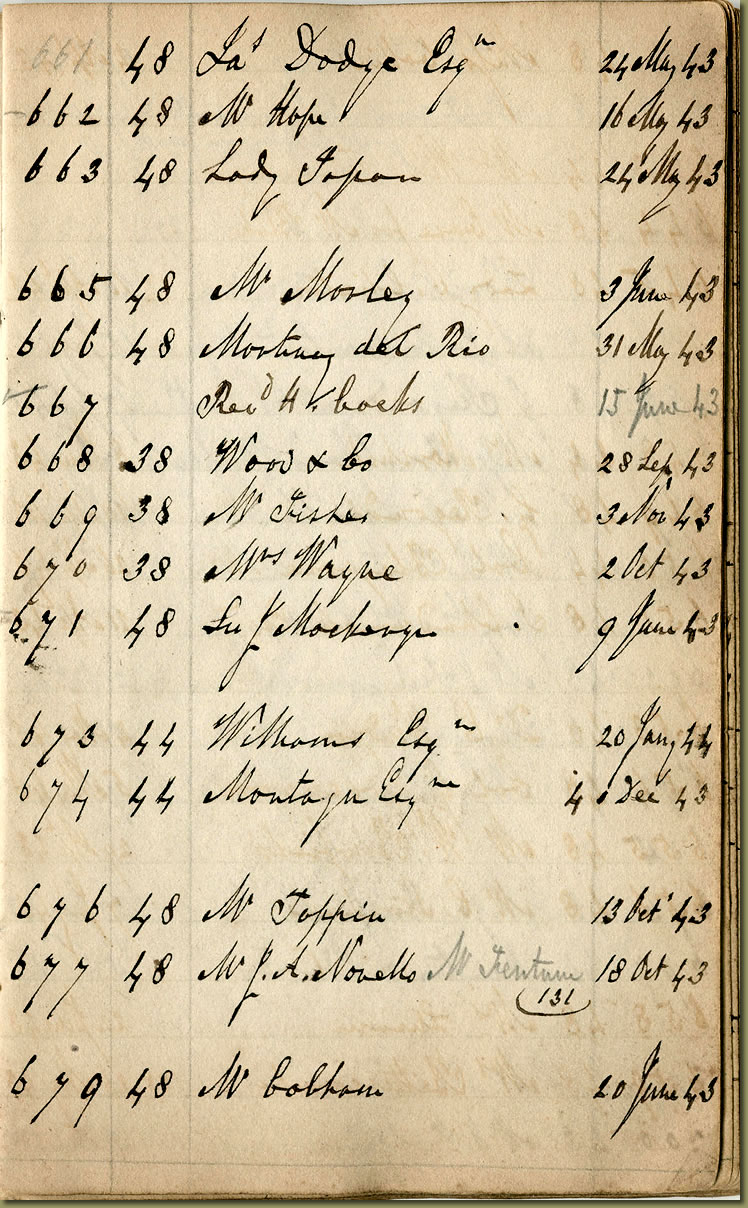 661 48 Jas Dodge Esqre 24 May 43
662 48 Mr Hope 16 May 43
663 48 Lady Tapon 24 May 43
665 48 Mr Morley 3 June 43
666 48 Martinez del Rio 31 May 43
667 Revd H. Cocks 15 June 43
668 38 Wood & Co 28 Sep 43
669 38 Mr Fisher 3 Nov 43
670 38 Mrs Wayne 2 Oct 43
671 48 J Mackenzie 9 June 43
673 44 Williams Esqre 20 Jany 44
674 44 Montagu Esqre 4 Dec 43
676 48 Mr Toppin 13 Oct 43
677 48 Mr J. A. Novello Mr Fentum 18 Oct 43
131
679 48 Mr Cobham 20 June 43